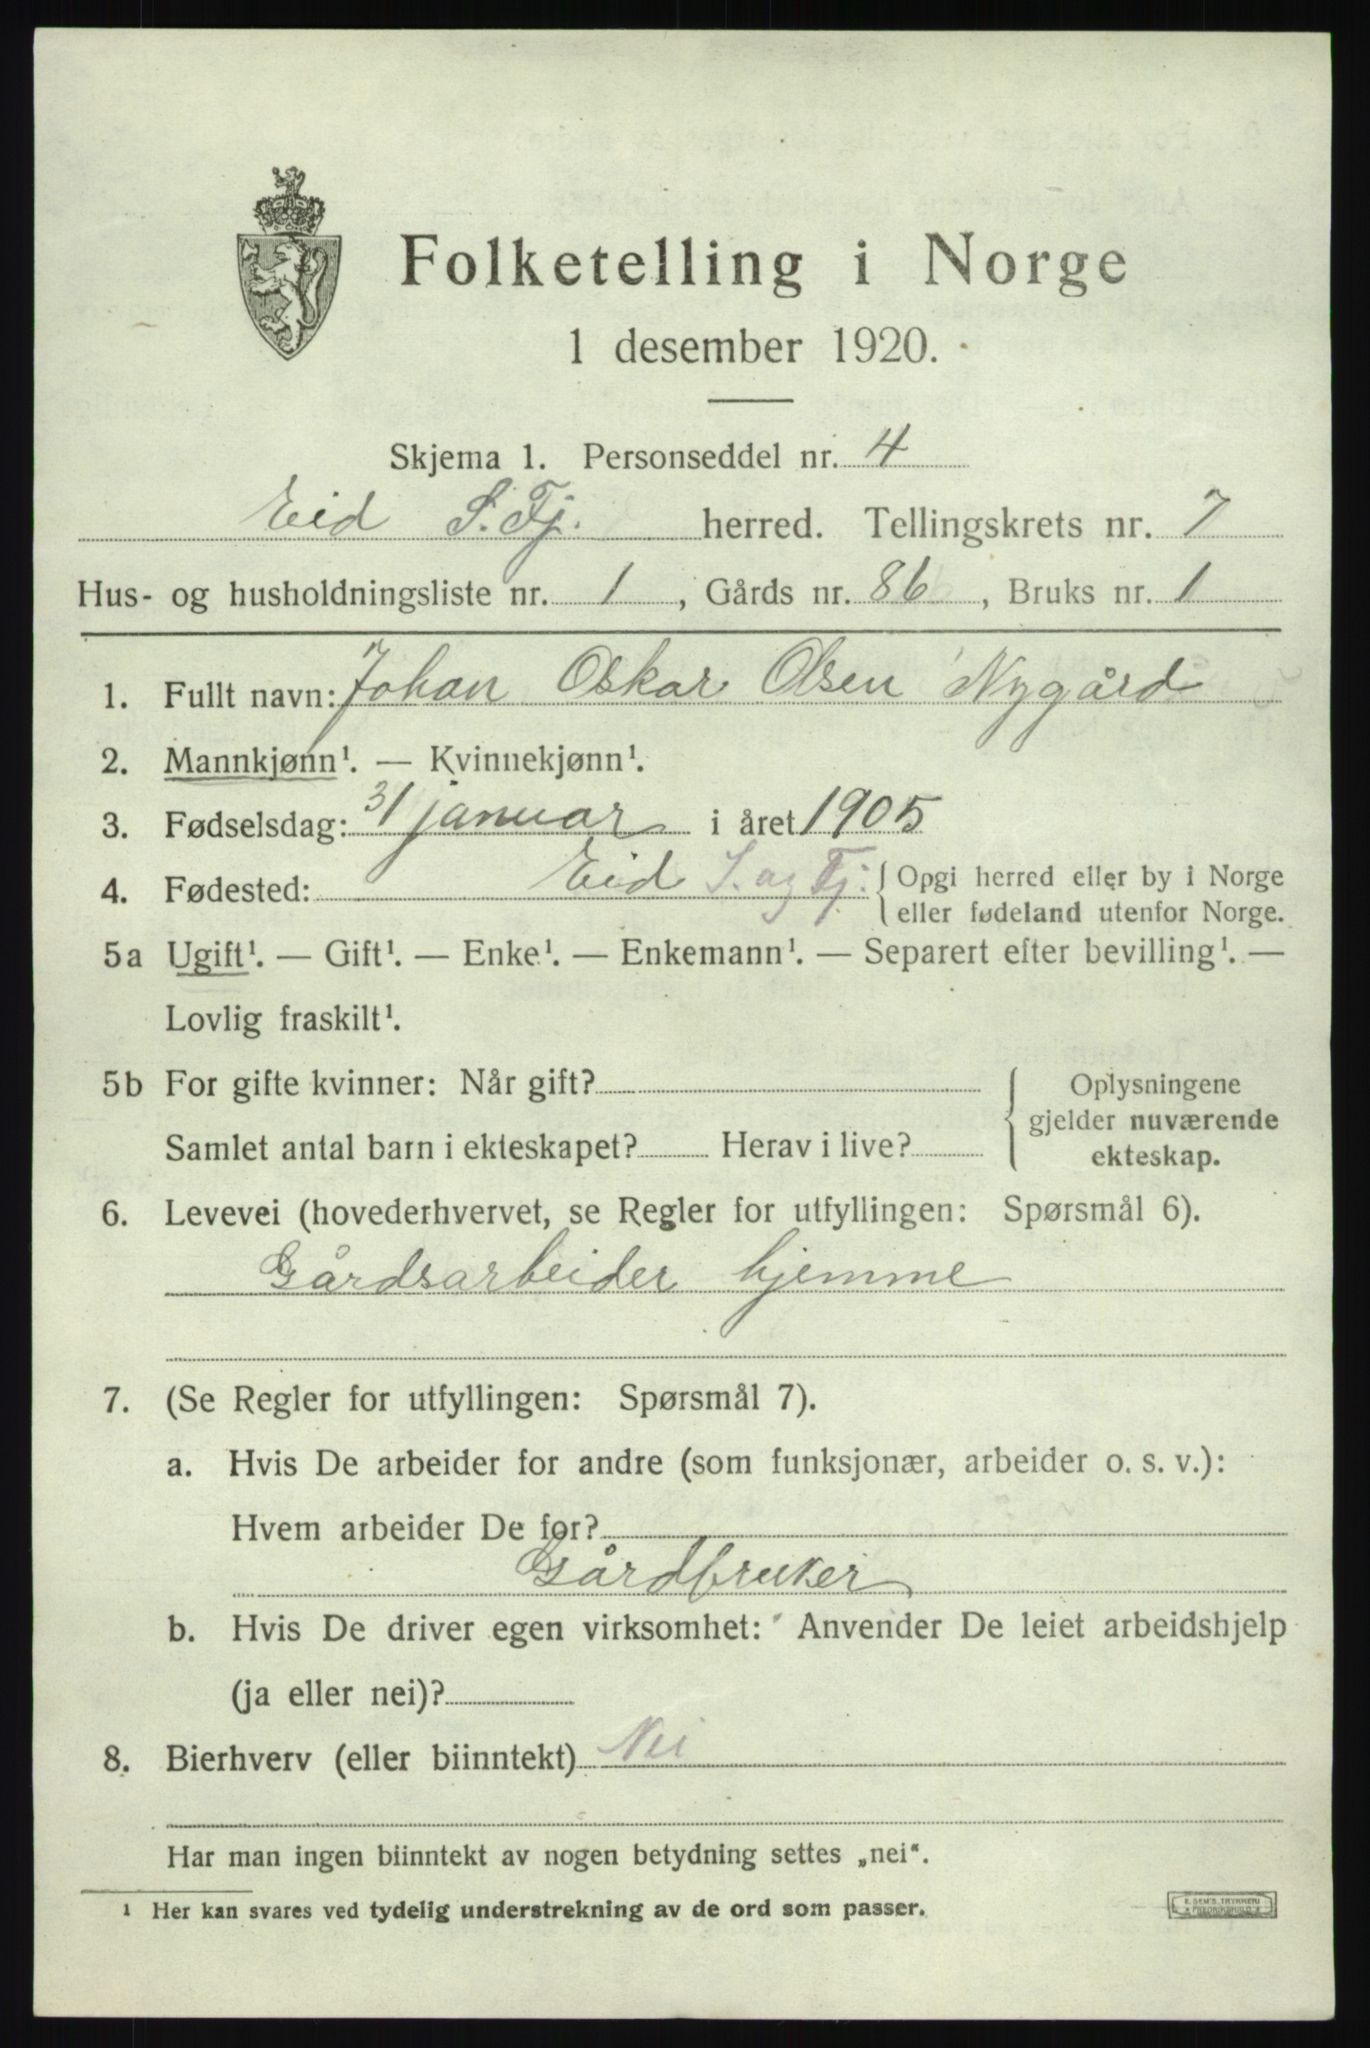 Folketelling i Norge
1 desember 1920.
Skjema 1. Personseddel nr. 4
Eid S. Fj. herred. Tellingskrets nr. 7
Hus- og husholdningsliste nr. 1, Gårds nr. 86, Bruks nr. 1
1. Fullt navn: Johan Oskar Olsen Nygård
2. Mannkjønn¹. — Kvinnekjønn¹.
3. Fødselsdag: 31 januar i året 1905
4. Fødested: Eid S. og Fj. { Opgi herred eller by i Norge
eller fødeland utenfor Norge.
5a Ugift¹. — Gift¹. — Enke¹. — Enkemann¹. — Separert efter bevilling¹. —
Lovlig fraskilt¹.
5b For gifte kvinner: Når gift?
Samlet antal barn i ekteskapet? Herav i live?
{ Oplysningene
gjelder nuværende
ekteskap.
6. Levevei (hovederhvervet, se Regler for utfyllingen: Spørsmål 6).
Gårdsarbeider hjemme
7. (Se Regler for utfyllingen: Spørsmål 7).
a. Hvis De arbeider for andre (som funksjonær, arbeider o. s. v.):
Hvem arbeider De for?
Gårdbruker
b. Hvis De driver egen virksomhet: Anvender De leiet arbeidshjelp
(ja eller nei)?
8. Bierhverv (eller biinntekt) Nei
Har man ingen biinntekt av nogen betydning settes „nei“.
¹ Her kan svares ved tydelig understrekning av de ord som passer.